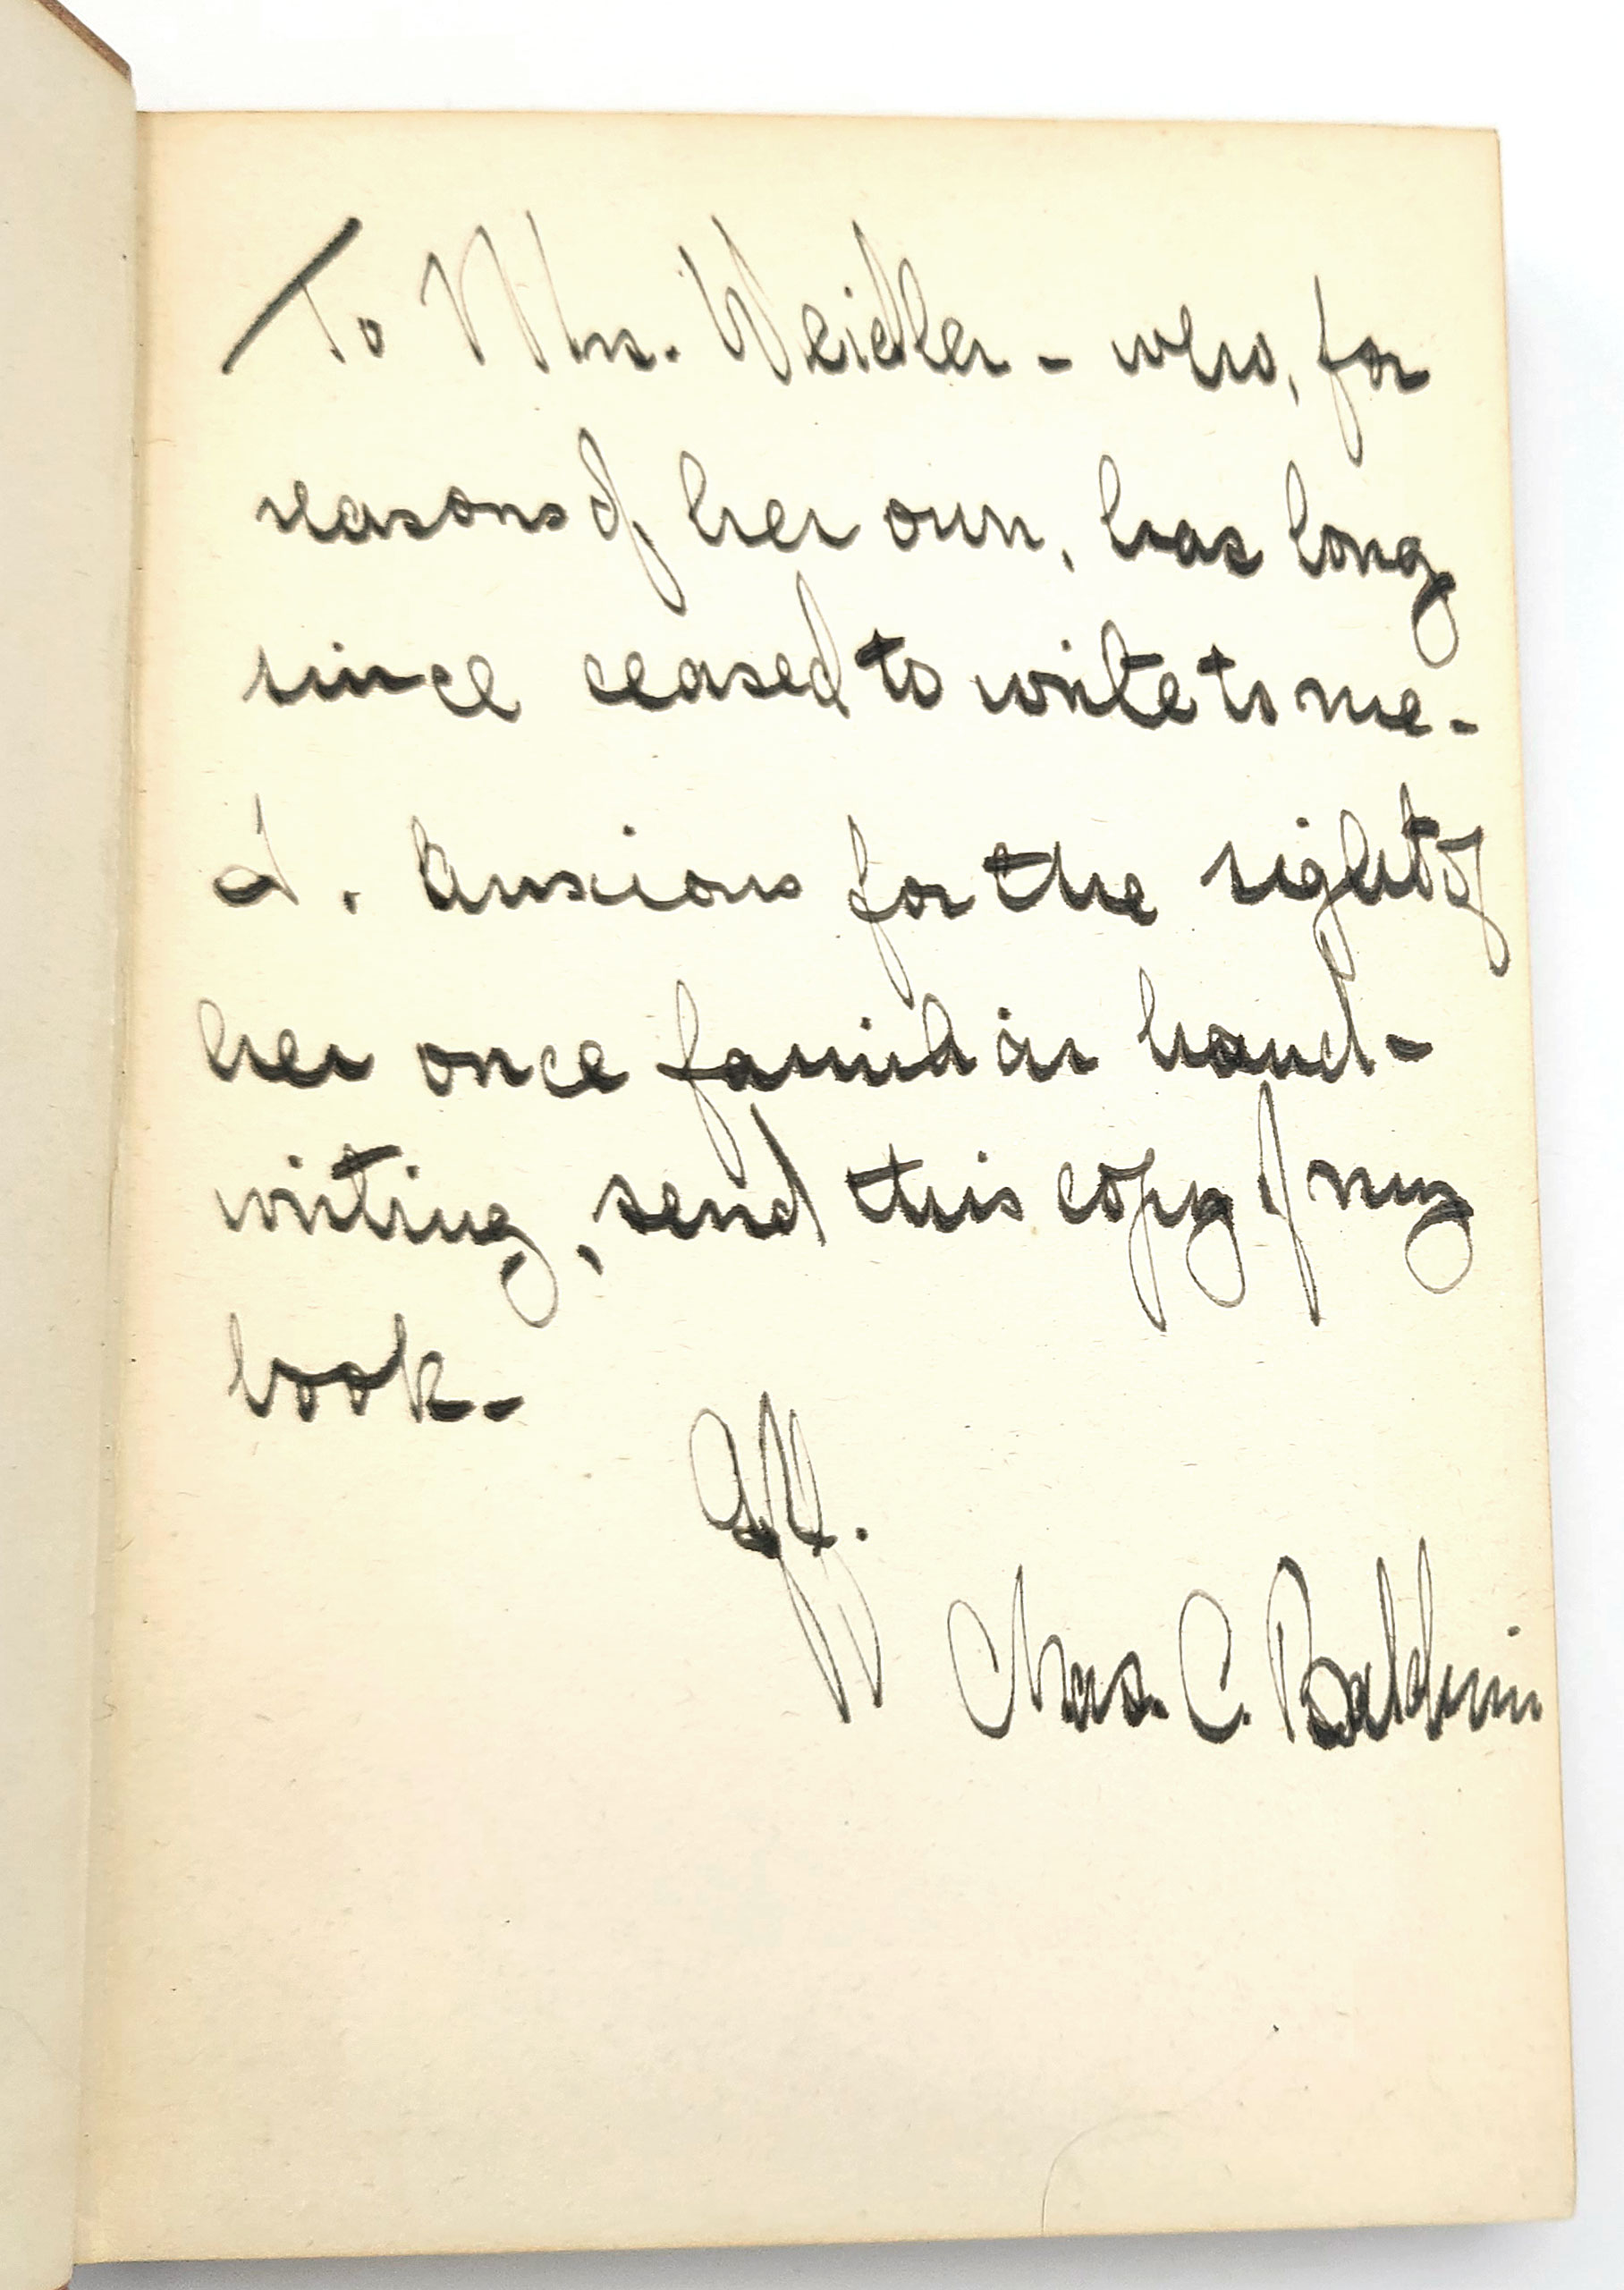 To Mrs. Weidler - who, for
reasons of her own, has long
since ceased to write to me -
I. Anxious for the sight of
her once familiar hand-
writing, send this copy of my
book -
Chas. C. Baldwin